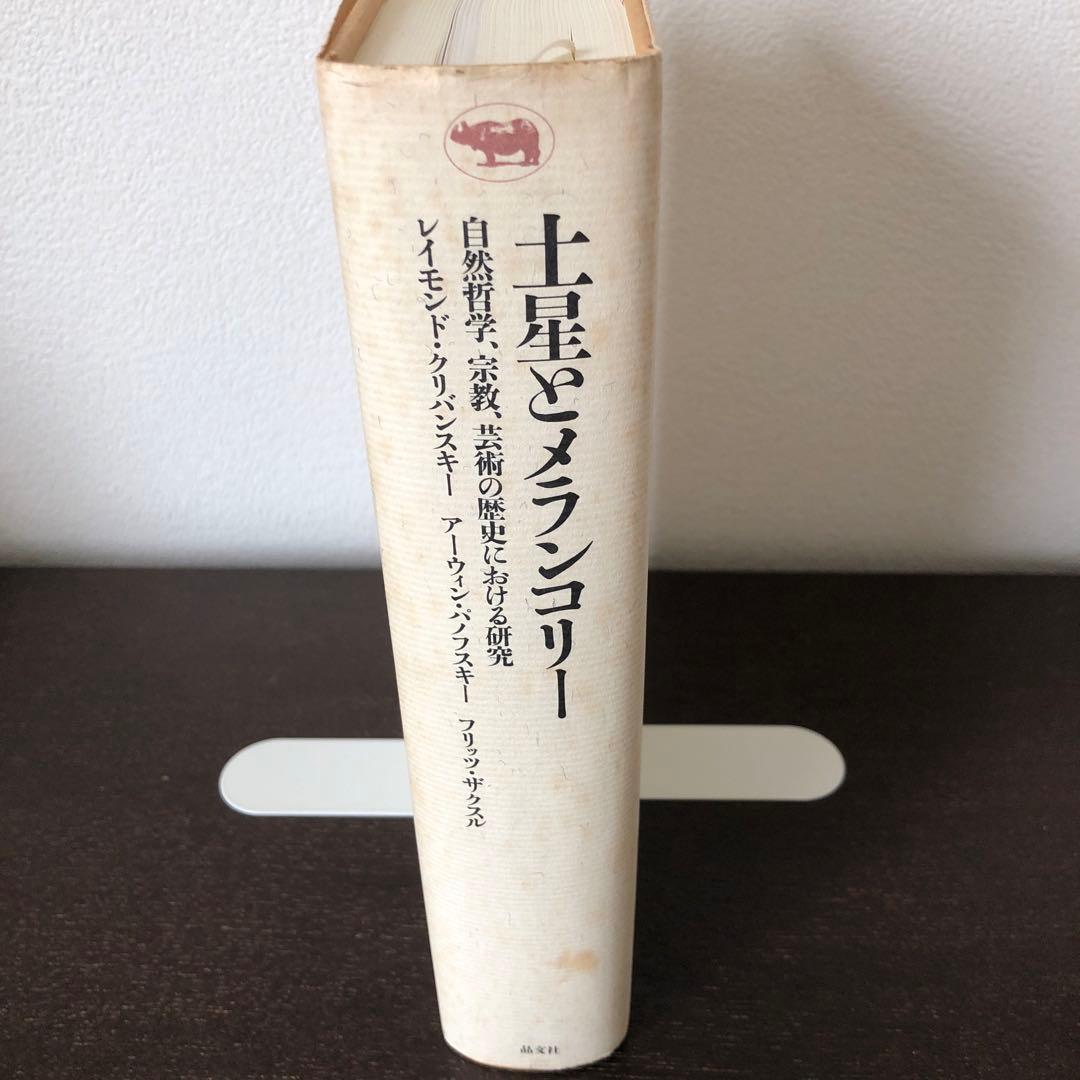 土星とメランコリー
自然哲学、宗教、芸術の歴史における研究
レイモンド・クリバンスキー アーウィン・パノフスキー フリッツ・ザクスル
晶文社